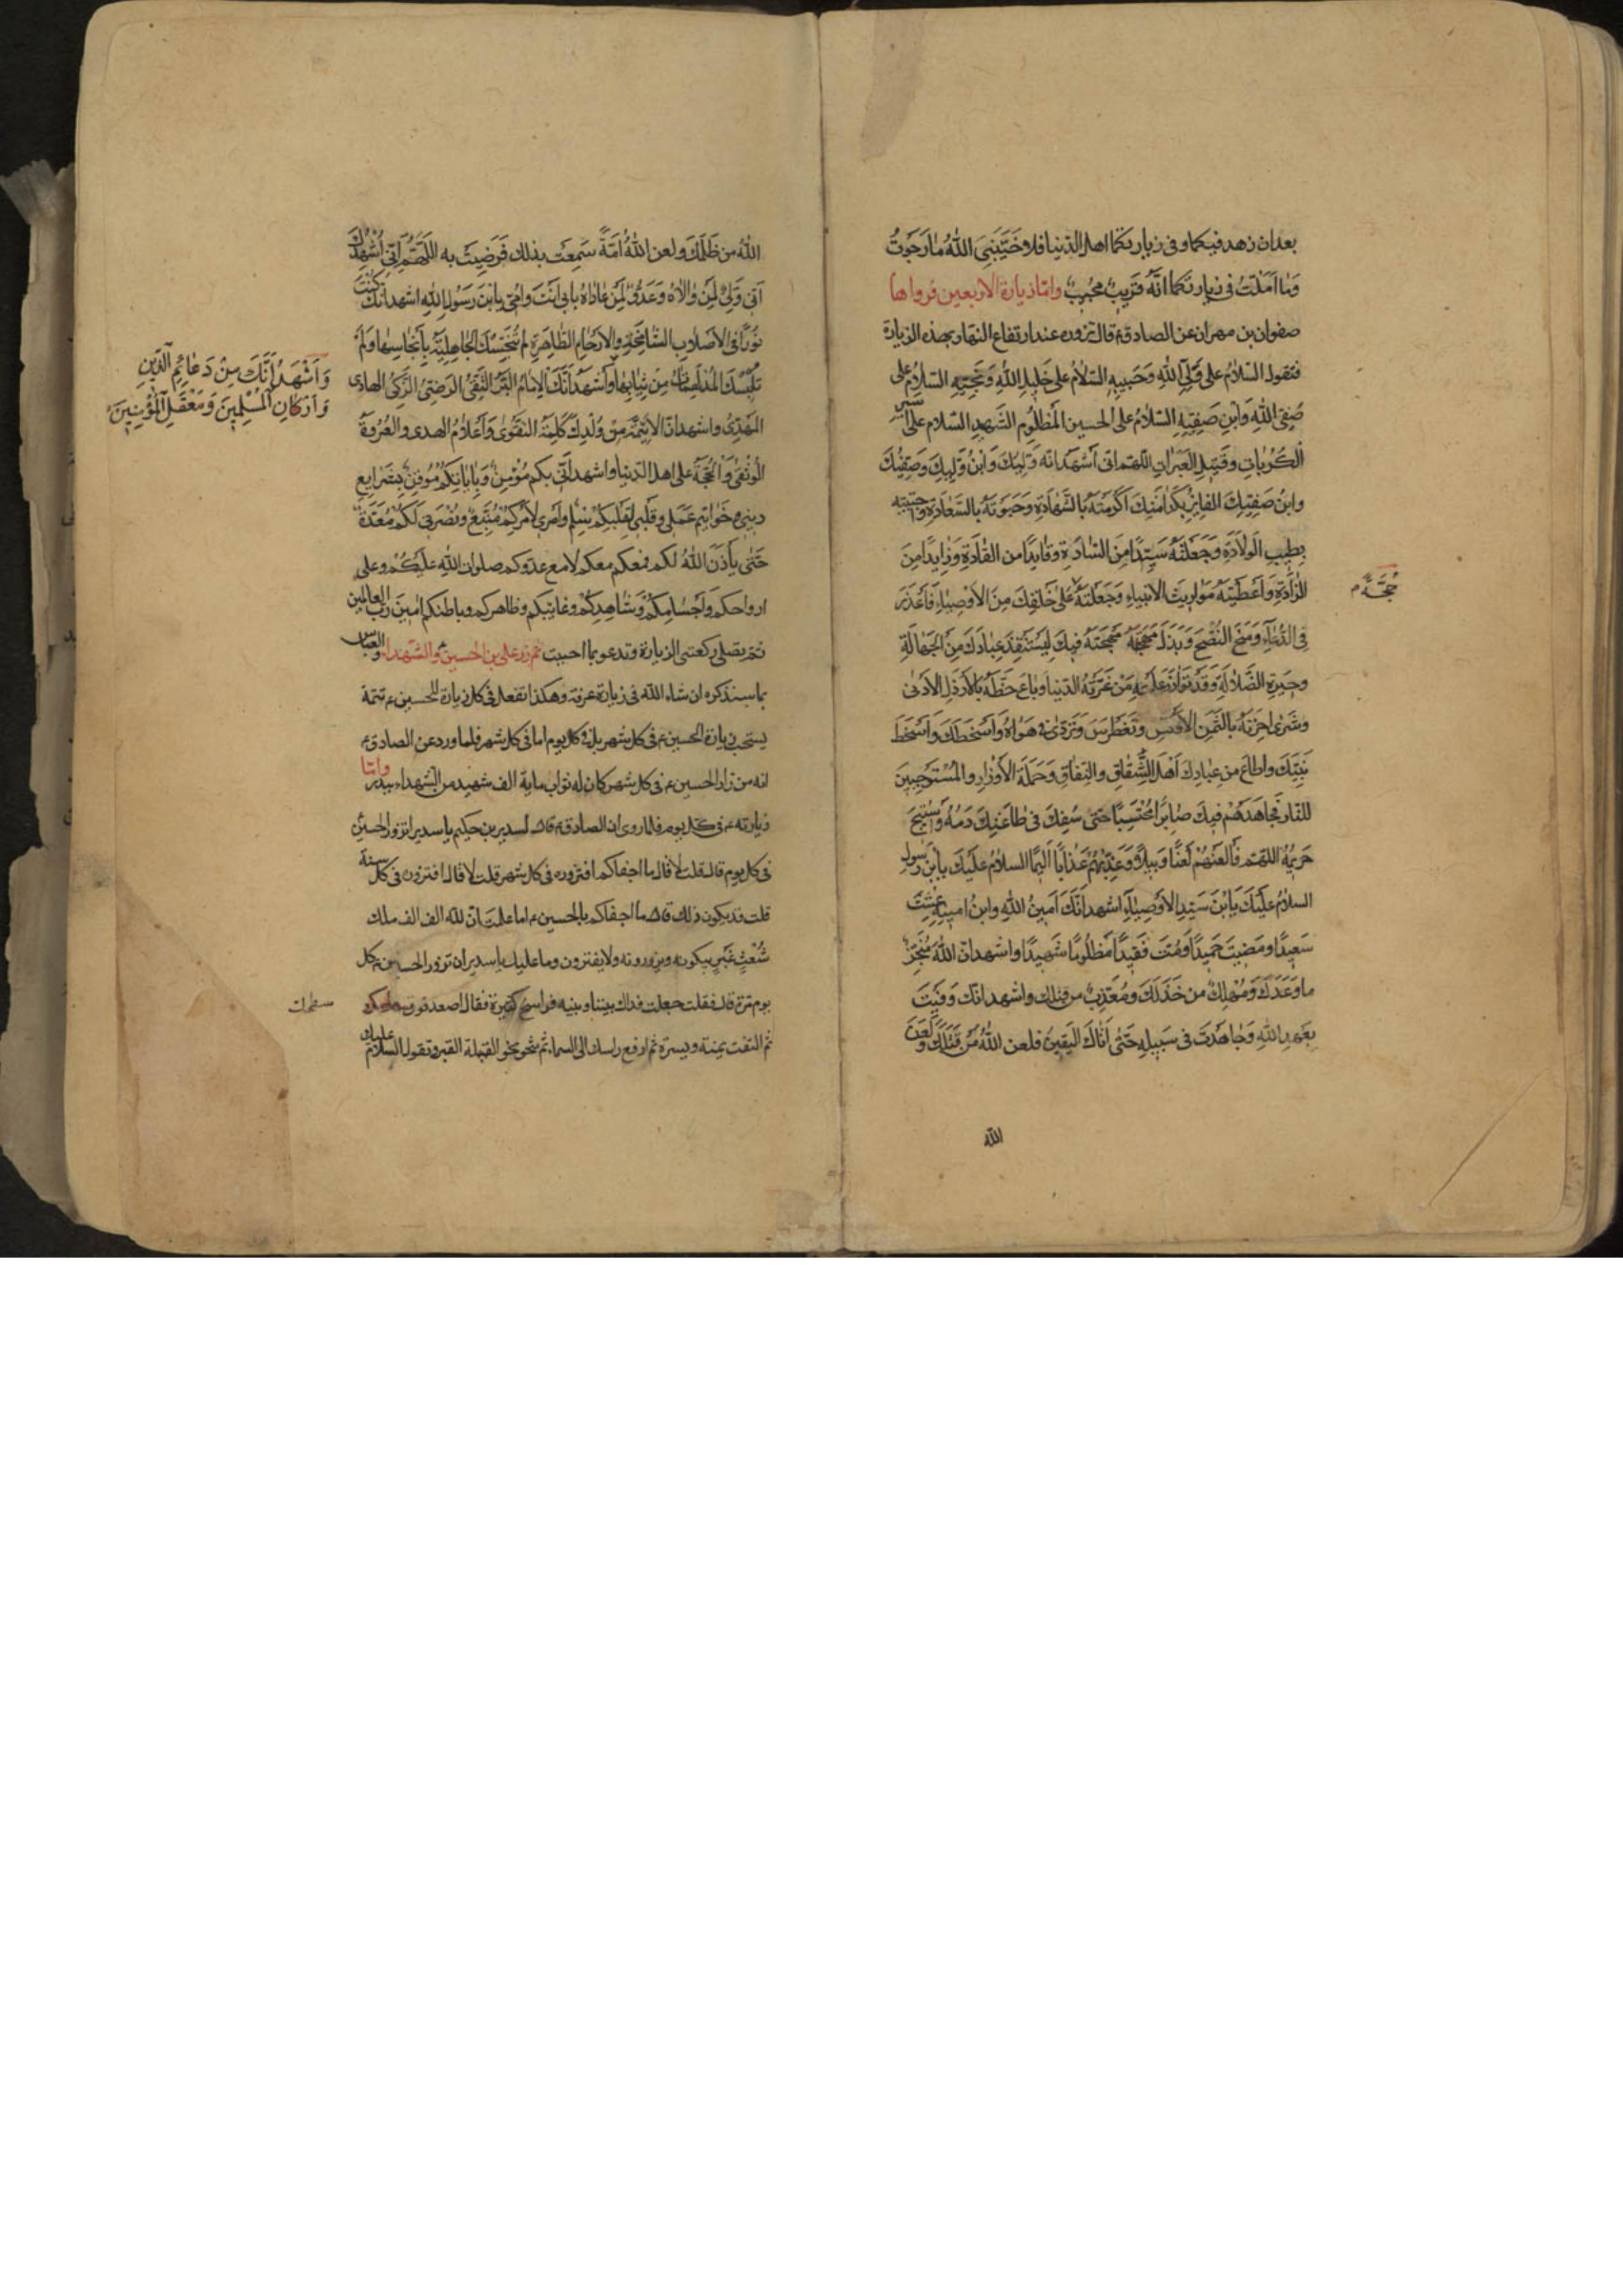 بعدان زهد فيكما وفى زيارتكما اهل الدّنيا فلا خَيَّبَنِىَ اللّٰهُ ما رَجَوتُ
وَما اَمَلتُ فى زيارتكما انّه قَريبٌ مجُيبٌ وامّا زيارة الاربعين فرواها
صفوان بن مهران عن الصادق ع قال تزوره عند ارتفاع النهار بهذه الزيارة
فتقول السّلامُ على وَلِىِّ اللّٰهِ وَحَبيبِهِ السّلامُ على خَليلِ اللّٰهِ وَنَجيبِهِ السّلامُ على
صَفِىِّ اللّٰهِ وَابنِ صَفِيِّهِ السّلامُ على الحسينِ المَظلُومِ الشَّهيدِ السّلام على اَسيرِ
الكُرُباتِ وقَتيلِ العَبَراتِ اللّهمّ انى اَشهَدُ انّه وَليُّكَ وَابنُ وَليِّكَ وَصَفِيُّكَ
وابنُ صَفِيِّكَ الفايزُ بِكَرامَتِكَ اَكرَمتَهُ بالشَّهادَةِ وَحَبَوتَهُ بالسَّعادَةِ واجتبيته
بِطيبِ الوِلادَةِ وَجَعَلتَهُ سَيِّداً مِنَ السّادَةِ وقايِداً من القادَةِ وَذايِداً مِنَ
الذّادَةِ وَاَعطَيتَه مَواريثَ الاَنبياءِ وَجَعَلتَهُ على خَلقِكَ مِنَ الاَوصِياءِ فَاَعذَرَ
حُجَّةً م
فِى الدُّعاءِ وَمَنَحَ النُّصحَ وَبَذَلَ مُهجَتَهُ فيكَ لِيَستَنقِذَ عِبادَكَ مِنَ الجَهالَةِ
وحَيرَةِ الضَّلالَةِ وَقَد تَوازَرَ عَلَيهِ مَن غَرَّتهُ الدّنيا وباعَ حَظَّهُ بالاَرذَلِ الاَدنى
وشَرى اخِرَتَهُ بالثَّمَنِ الاَوكَسِ وتَغَطرَسَ وَتَرَدّى فى هَواهُ وَاَسخَطَكَ وَاَسخَطَ
نَبيَّكَ واطاعَ من عِبادِكَ اَهلَ الشِّقاقِ والنِّفاقِ وَحَمَلَةَ الاَوزارِ والمُستَوجِبينَ
للنّار فجاهَدَهُم فيكَ صابِراً مُحتَسِباً حَتّى سُفِكَ فى طاعَتِكَ دَمُهُ وَاستُبيحَ
حَريمُهُ اللّهمّ فَالعَنهُم لَعناً وَبيلاً وَعَذِّبهُم عَذاباً اَليماً السلامُ عَلَيكَ يابنَ رَسُولِ
السلامُ عَلَيكَ يَابنَ سَيِّدِ الاَوصِياءِ اشهد انَّكَ اَمينُ اللّٰهِ وابنُ امينِهِ عِشتَ
سَعيداً ومَضَيتَ حَميداً وَمُتَّ فَقيداً مَظلُوماً شَهيداً واشهد انّ اللّٰهَ مُنجِزٌ
ما وَعَدَكَ وَمُهلِكٌ من خَذَلَكَ ومُعَذِّبٌ من قتلك واشهد انّك وَفَيتَ
بِعَهدِ اللّٰهِ وَجاهَدتَ فى سَبيلِهِ حَتّى اَتاكَ اليَقينُ فلعن اللّٰهُ مَن قَتَلَكَ وَلَعَنَ
اللّٰه
اللّٰهُ من ظَلَمَكَ ولعن اللّٰهُ اُمّةً سَمِعَت بذلك فَرَضِيَت به اللّهمّ اِنّى اُشهِدُكَ
اَنّى وَلِىٌّ لِمَن والاهُ وَعَدُوٌّ لِمَن عاداهُ بابى اَنتَ وامّى يابنَ رَسُولِ اللّٰهِ اشهد انّك كُنتَ
نُوراً فى الاَصلابِ الشّامِخَةِ والاَرحامِ الطّاهِرَةِ لم تُنَجِّسكَ الجاهِليَّةُ بِاَنجاسِها وَلَم
تُلبِسكَ المُدلَهِمّاتُ مِن ثيابِها وَاَشهَدُ انَّكَ الاِمامُ البَرُّ التَّقِىُّ الرَضِىُّ الزَّكِىُّ الهادِى
وَاَشهَدُ اَنَّكَ مِن دَعائِمِ الدّينِ
وَاَركانِ المُسلِمينَ وَمَعقِلِ المُؤمِنينَ
المَهدِىُّ واشهد انّ الائِمَّةَ مِن وُلدِكَ كَلِمَةُ التَقوى وَاَعلامُ الهدى والعُروَةُ
الوُثقى وَالحُجَّةُ على اهل الدّنيا واشهد اَنّى بكم مُؤمِنٌ وَبِاِيابِكُم مُوقِنٌ بِشَرايِعِ
دينى وخَواتِيمِ عَمَلى وقَلبى لِقَلبِكُم سِلمٌ وَاَمرى لاَمرِكُم مُتَّبِعٌ ونُصرَتى لَكُم مُعَدَّةٌ
حَتّى يأذَنَ اللّٰهُ لكم فمعكم معكم لا مع عدوّكم صلوات اللّٰهِ عَلَيكُم وعلى
ارواحكم وَاَجسامِكُم وَشاهِدِكُم وغايبكم وظاهركم وباطنكم امينَ ربّ العالمين
ثم يصلى ركعتى الزيارة وتدعو بما احببت ثم زر على بن الحسين ع والشهداء والعباس
بما سنذكره ان شاء اللّٰه فى زيارة عرفة وهكذا تفعل فى كل زيارة للحسين ع تتمة
يستحب زيارة الحسين ع فى كل شهر بل فى كل يوم اما فى كل شهر فلما ورد عن الصادق ع
انه من زار الحسين ع فى كل شهر كان له ثواب ماية الف شهيد من الشهداء ببدر وامّا
زيارته ع فى كل يوم فلما روى ان الصادق ع قال لسدير بن حكيم يا سدير اتزور الحسين
فى كل يوم قال قلت لا قال ما اجفاكم افتزوره فى كل شهر قلت لا قال افتزوره فى كل سنة
قلت قد يكون ذلك قال ما اجفاكم بالحسين ع اما علمت انّ للّٰه الف الف ملك
شُعثٍ غُبرٍ يبكونه ويزورونه ولا يفترون وما عليك يا سدير ان تزور الحسين ع كل
يوم مرّة قال فقلت جعلت فداك بيننا وبينه فراسخ كثيرة فقال اصعد فوق
ثم التفت يمنة ويسرة ثم ارفع راسك الى السماء ثم تنحو نحو القبلة القبر وتقول السّلام عليك